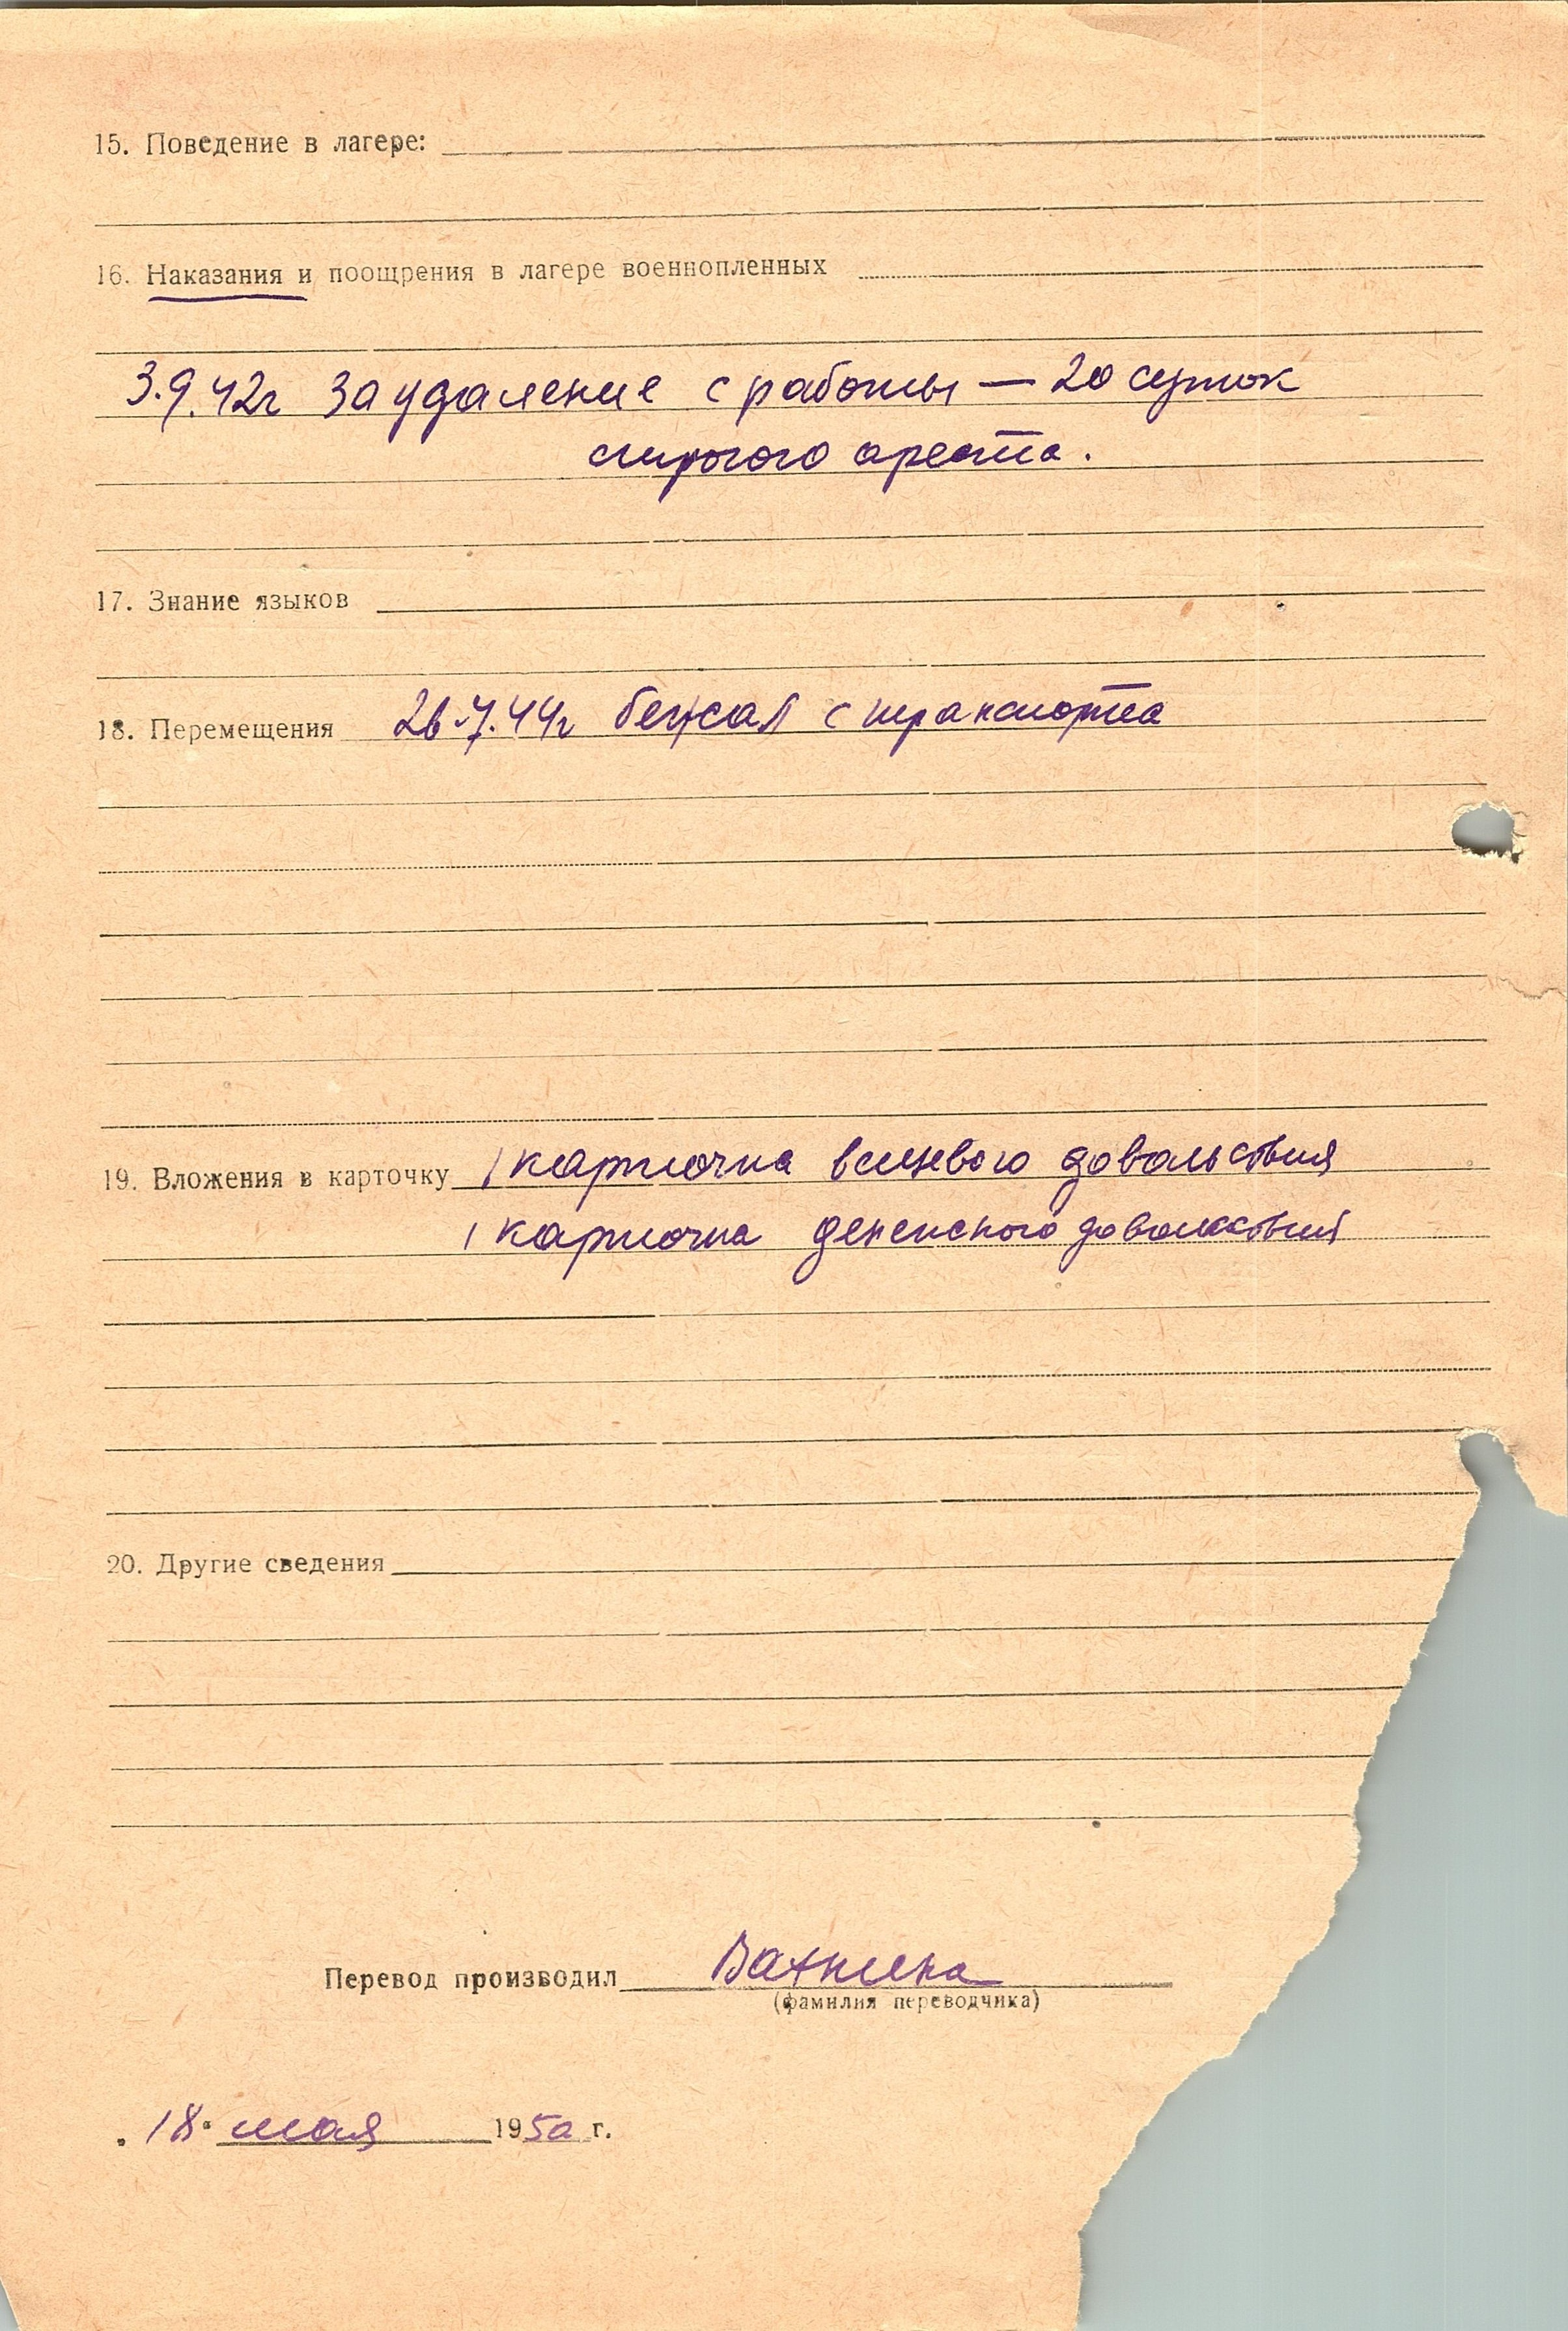 15. Поведение в лагере:
16. Наказания и поощрения в лагере военнопленных
3.9.42г За удаление с работы — 20 суток
строгого ареста.
17. Знание языков
18. Перемещения 26.7.44г бежал с транспорта
19. Вложения в карточку 1 карточка вещевого довольствия
1 карточка денежного довольствия
20. Другие сведения
Перевод производил
(фамилия переводчика)
„18" мая 1950 г.